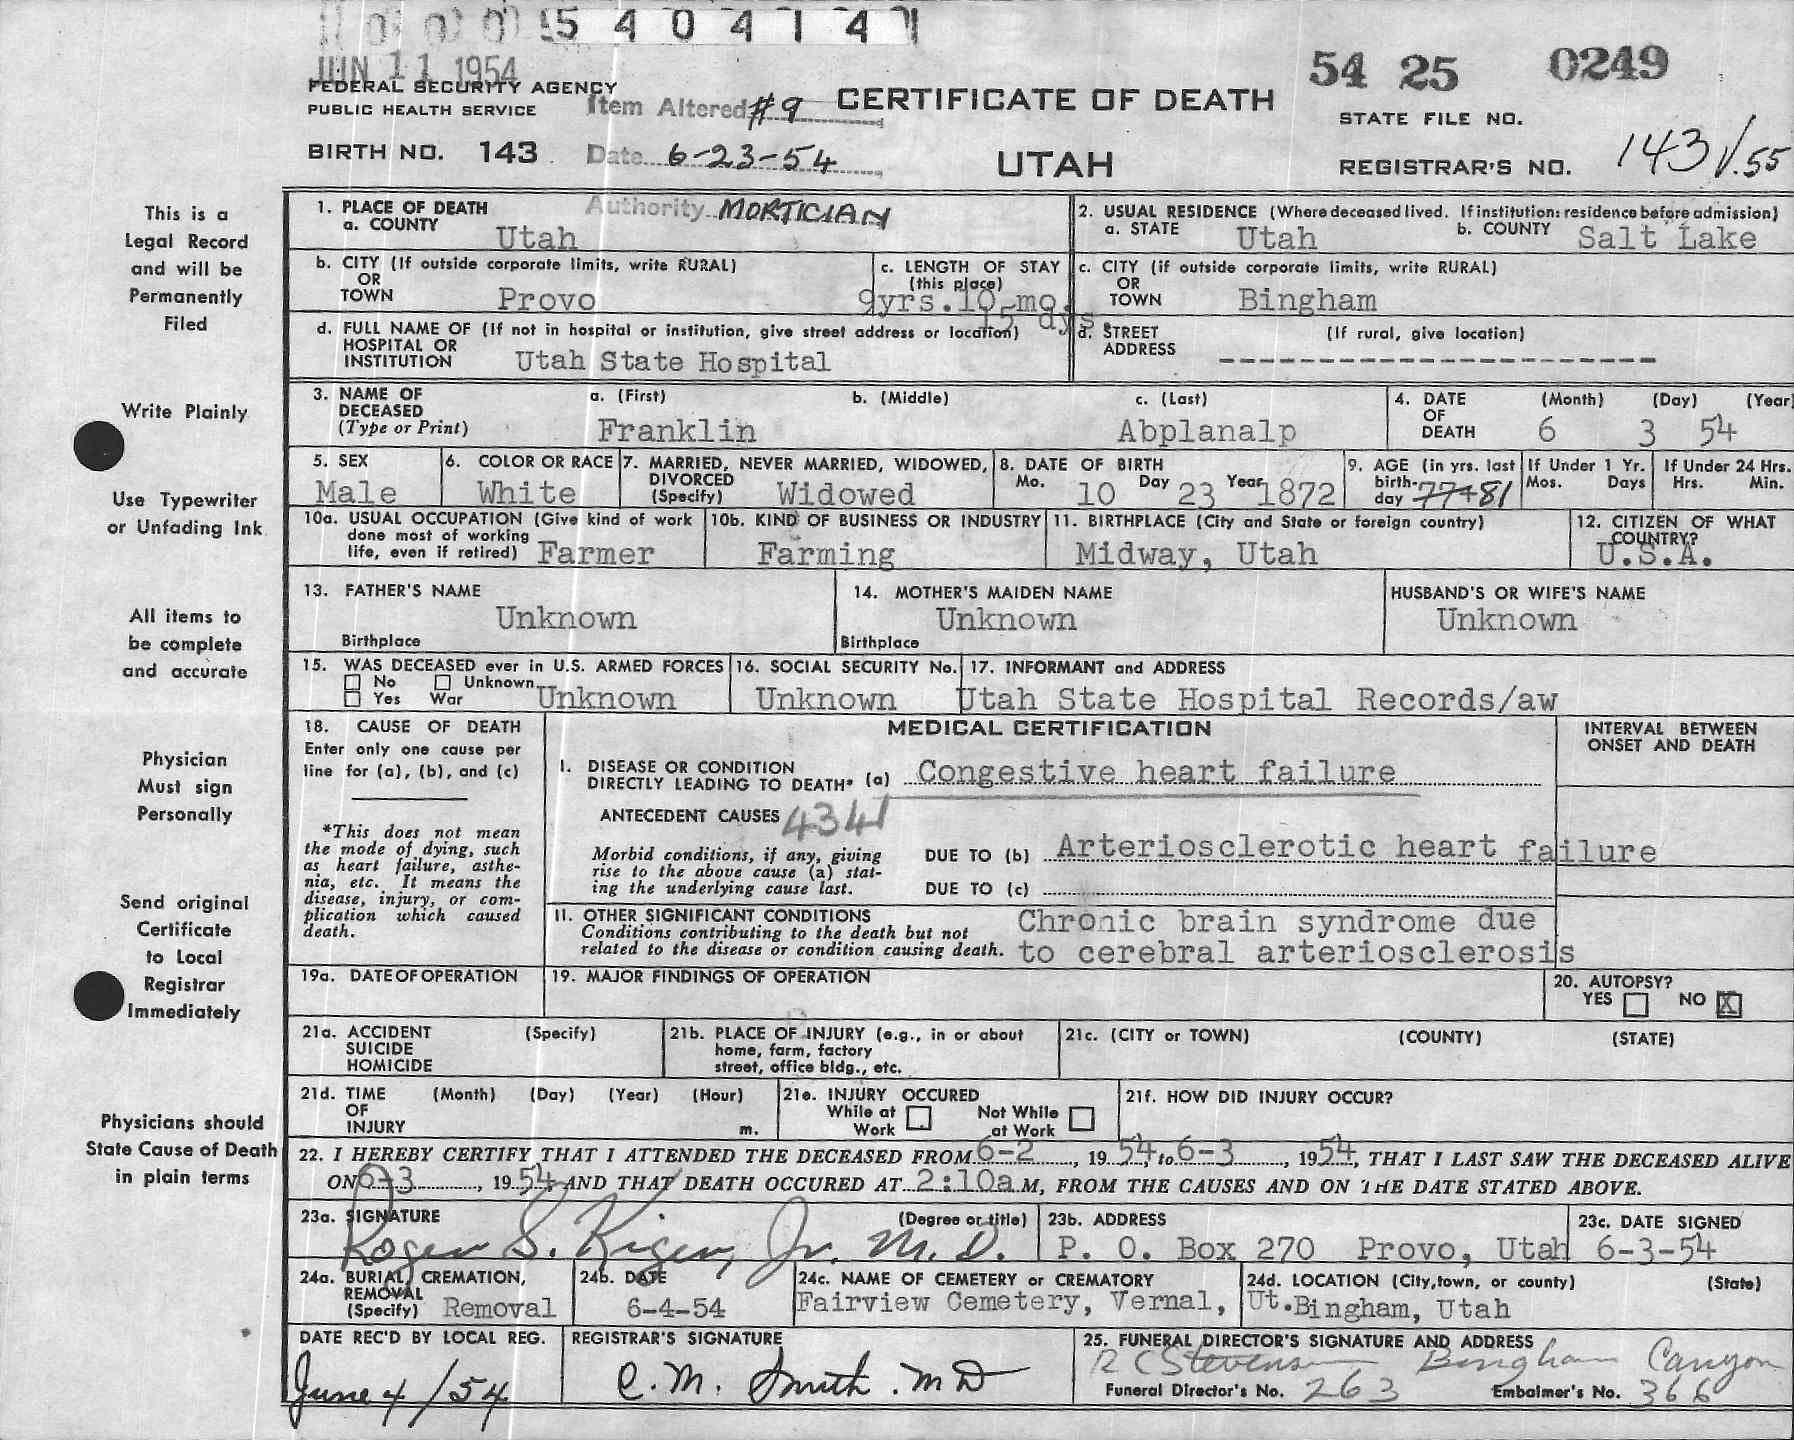 0 0 0 5 4 0 4 1 4 1
JUN 11 1954
54 25 0249
FEDERAL SECURITY AGENCY
PUBLIC HEALTH SERVICE
Item Altered #9
CERTIFICATE OF DEATH
STATE FILE NO.
BIRTH NO. 143
Date 6-23-54
UTAH
REGISTRAR'S NO. 143 V.55
This is a
Legal Record
and will be
Permanently
Filed
Write Plainly
Use Typewriter
or Unfading Ink
All items to
be complete
and accurate
Physician
Must sign
Personally
Send original
Certificate
to Local
Registrar
Immediately
Physicians should
State Cause of Death
in plain terms
1. PLACE OF DEATH
Authority MORTICIAN
a. COUNTY Utah
2. USUAL RESIDENCE (Where deceased lived. If institution: residence before admission)
a. STATE Utah b. COUNTY Salt Lake
b. CITY (If outside corporate limits, write RURAL)
OR
TOWN Provo
c. LENGTH OF STAY
(this place)
9yrs.10 mo.
15 dys.
c. CITY (if outside corporate limits, write RURAL)
OR
TOWN Bingham
d. FULL NAME OF (If not in hospital or institution, give street address or location)
HOSPITAL OR
INSTITUTION Utah State Hospital
d. STREET (If rural, give location)
ADDRESS --------------------
3. NAME OF
DECEASED
(Type or Print)
a. (First) b. (Middle) c. (Last)
Franklin Abplanalp
4. DATE (Month) (Day) (Year)
OF
DEATH 6 3 54
5. SEX
Male
6. COLOR OR RACE
White
7. MARRIED, NEVER MARRIED, WIDOWED,
DIVORCED
(Specify) Widowed
8. DATE OF BIRTH
Mo. 10 Day 23 Year 1872
9. AGE (in yrs. last
birth-
day 77 81
If Under 1 Yr.
Mos. Days
If Under 24 Hrs.
Hrs. Min.
10a. USUAL OCCUPATION (Give kind of work
done most of working
life, even if retired) Farmer
10b. KIND OF BUSINESS OR INDUSTRY
Farming
11. BIRTHPLACE (City and State or foreign country)
Midway, Utah
12. CITIZEN OF WHAT
COUNTRY?
U.S.A.
13. FATHER'S NAME
Unknown
Birthplace
14. MOTHER'S MAIDEN NAME
Unknown
Birthplace
HUSBAND'S OR WIFE'S NAME
Unknown
15. WAS DECEASED ever in U.S. ARMED FORCES
No Unknown
Yes War Unknown
16. SOCIAL SECURITY No.
Unknown
17. INFORMANT and ADDRESS
Utah State Hospital Records/aw
18. CAUSE OF DEATH
Enter only one cause per
line for (a), (b), and (c)
*This does not mean
the mode of dying, such
as heart failure, asthe-
nia, etc. It means the
disease, injury, or com-
plication which caused
death.
MEDICAL CERTIFICATION
INTERVAL BETWEEN
ONSET AND DEATH
I. DISEASE OR CONDITION
DIRECTLY LEADING TO DEATH* (a) Congestive heart failure
ANTECEDENT CAUSES 4341
Morbid conditions, if any, giving
rise to the above cause (a) stat-
ing the underlying cause last.
DUE TO (b) Arteriosclerotic heart failure
DUE TO (c)
II. OTHER SIGNIFICANT CONDITIONS
Conditions contributing to the death but not
related to the disease or condition causing death.
Chronic brain syndrome due
to cerebral arteriosclerosis
19a. DATE OF OPERATION
19. MAJOR FINDINGS OF OPERATION
20. AUTOPSY?
YES NO X
21a. ACCIDENT (Specify)
SUICIDE
HOMICIDE
21b. PLACE OF INJURY (e.g., in or about
home, farm, factory
street, office bldg., etc.
21c. (CITY or TOWN) (COUNTY) (STATE)
21d. TIME (Month) (Day) (Year) (Hour)
OF
INJURY m.
21e. INJURY OCCURED
While at Not While
Work at Work
21f. HOW DID INJURY OCCUR?
22. I HEREBY CERTIFY THAT I ATTENDED THE DECEASED FROM 6-2, 1954, to 6-3, 1954, THAT I LAST SAW THE DECEASED ALIVE
ON 6-3, 1954 AND THAT DEATH OCCURED AT 2:10a M, FROM THE CAUSES AND ON THE DATE STATED ABOVE.
23a. SIGNATURE (Degree or title)
Roger S. Kiger, Jr. M.D.
23b. ADDRESS
P. O. Box 270 Provo, Utah
23c. DATE SIGNED
6-3-54
24a. BURIAL, CREMATION,
REMOVAL
(Specify) Removal
24b. DATE
6-4-54
24c. NAME OF CEMETERY or CREMATORY
Fairview Cemetery, Vernal, Ut.
24d. LOCATION (City, town, or county) (State)
Bingham, Utah
DATE REC'D BY LOCAL REG.
June 4/54
REGISTRAR'S SIGNATURE
C. M. Smith. MD
25. FUNERAL DIRECTOR'S SIGNATURE AND ADDRESS
R C Stevenson Bingham Canyon
Funeral Director's No. 263 Embalmer's No. 366